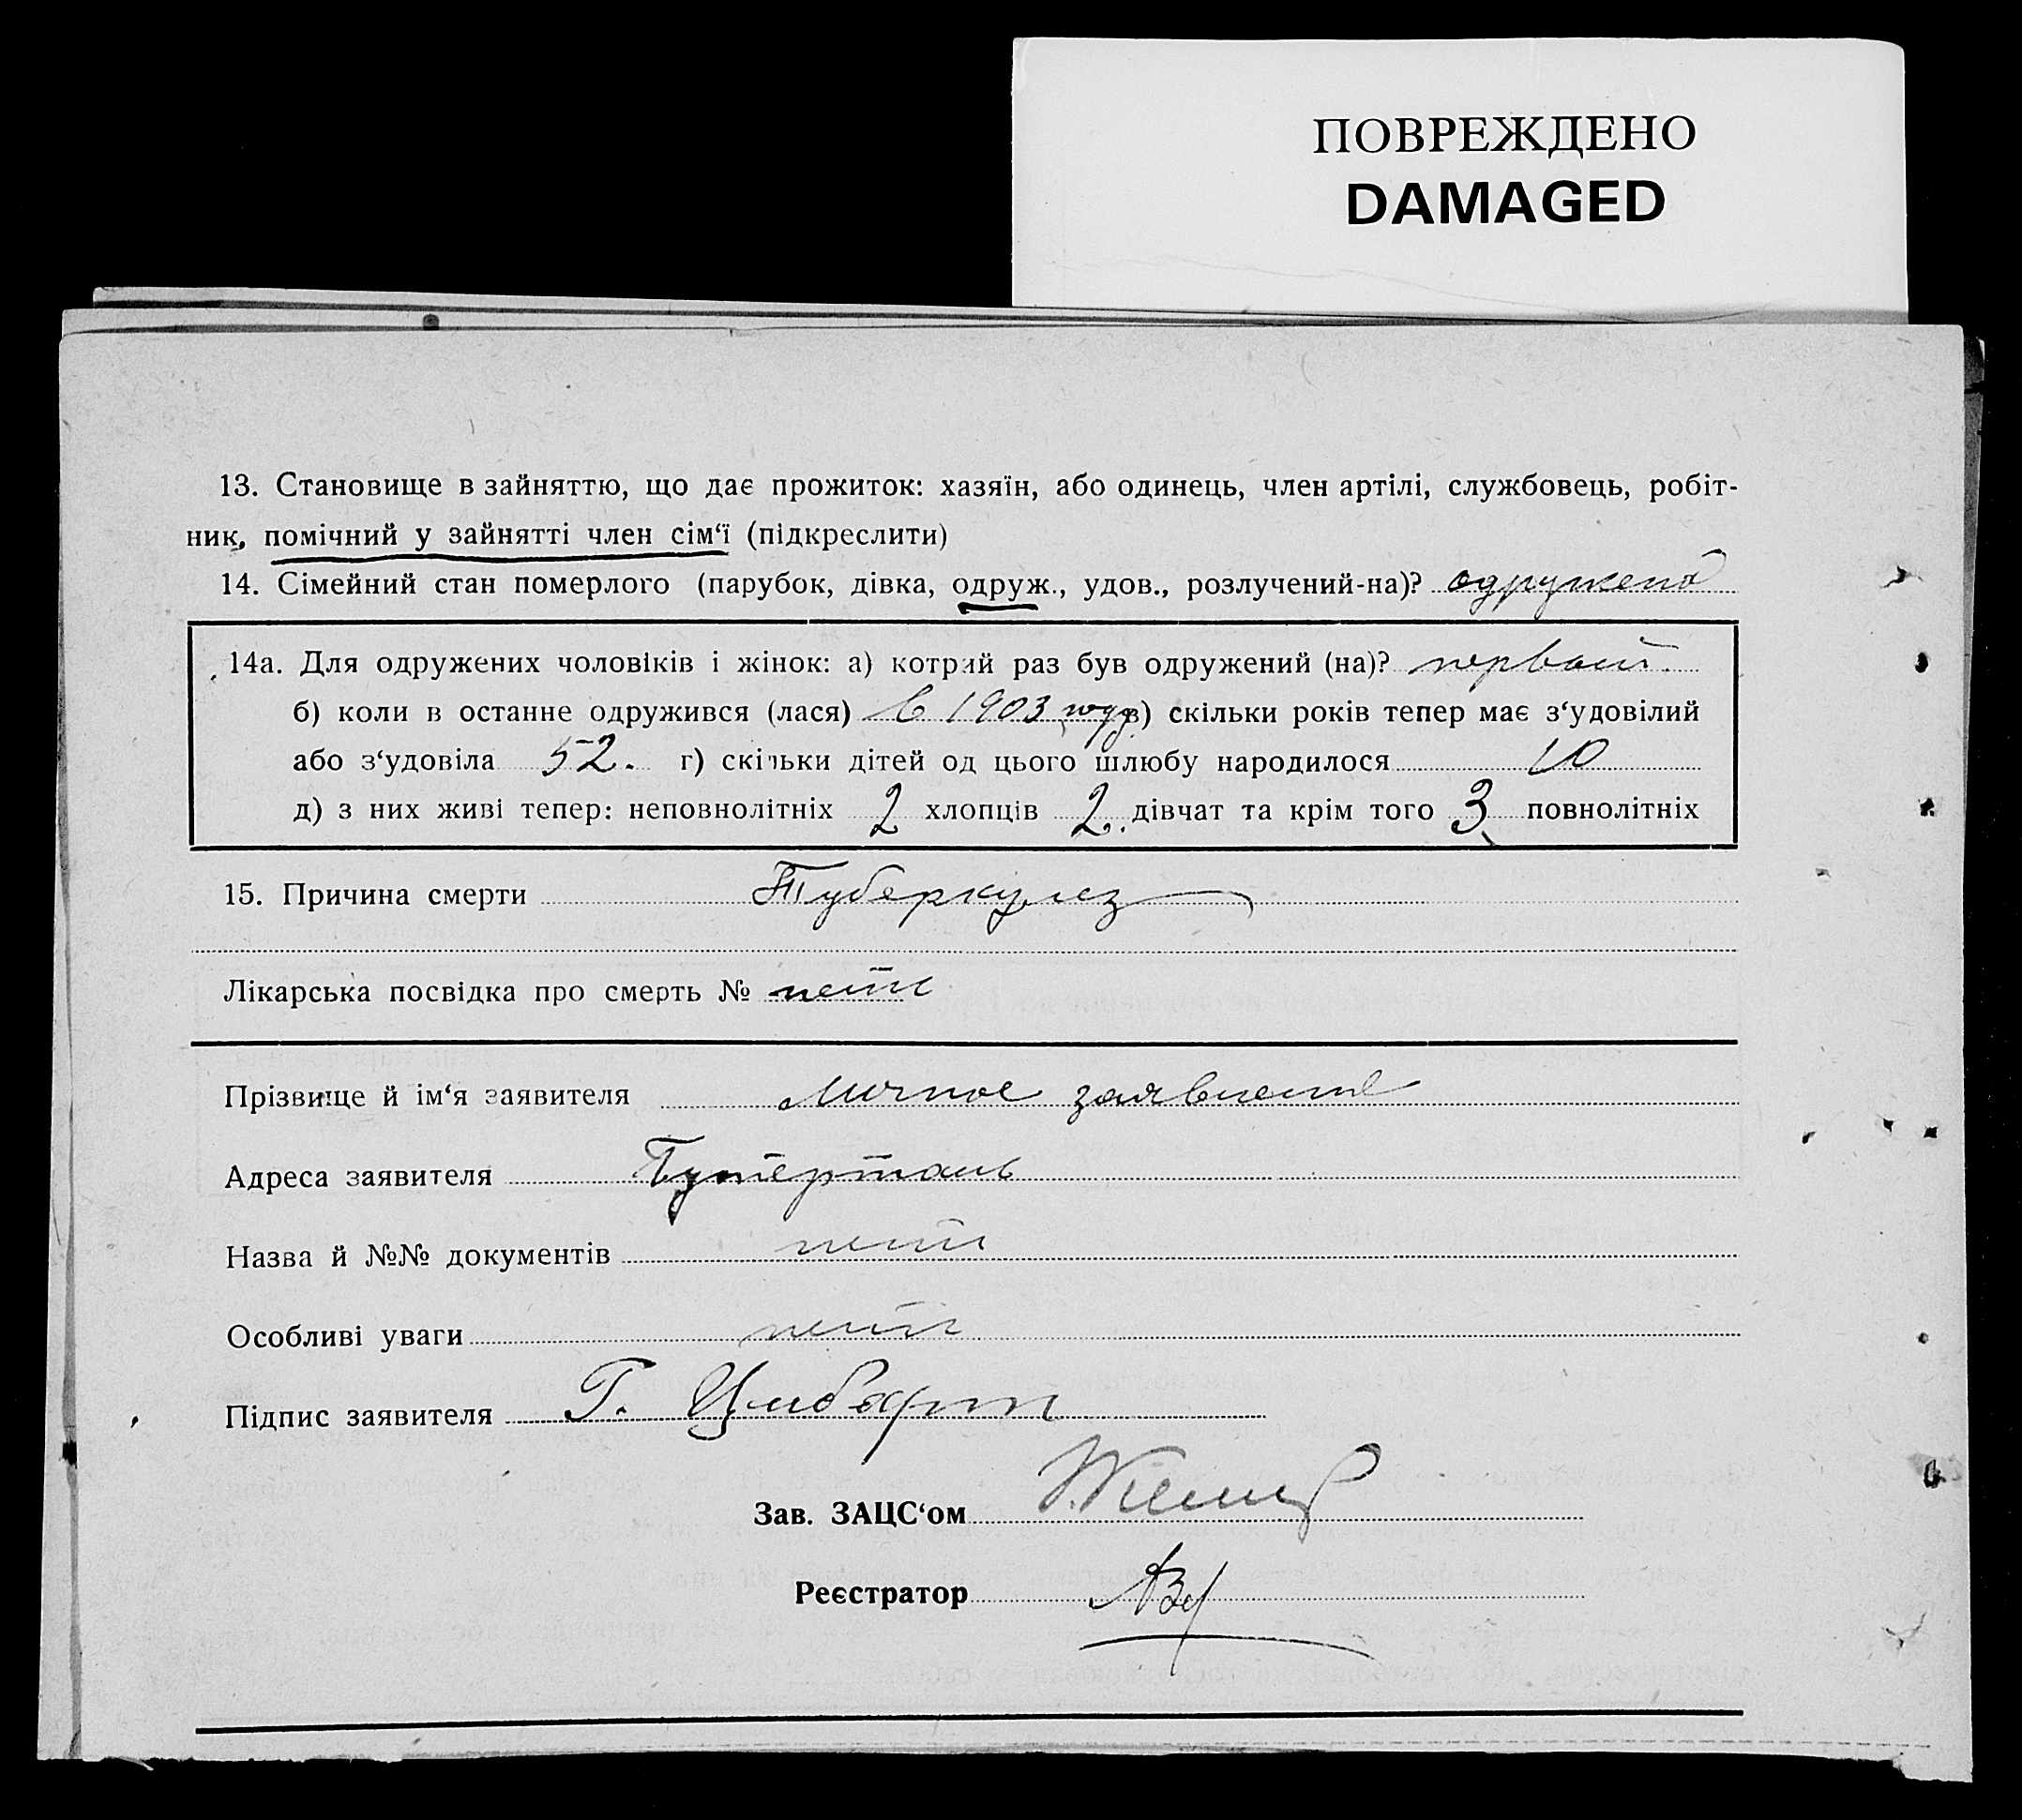 ПОВРЕЖДЕНО
DAMAGED
13. Становище в зайняттю, що дає прожиток: хазяїн, або одинець, член артілі, службовець, робіт-
ник, помічний у зайнятті член сім‘ї (підкреслити)
14. Сімейний стан померлого (парубок, дівка, одруж., удов., розлучений-на)? одружена
14а. Для одружених чоловіків і жінок: а) котрий раз був одружений (на)? первый.
б) коли в останнє одружився (лася) в 1903 году в) скільки років тепер має з‘удовілий
або з‘удовіла 52. г) скільки дітей од цього шлюбу народилося 10
д) з них живі тепер: неповнолітніх 2 хлопців 2. дівчат та крім того 3 повнолітніх
15. Причина смерти Туберкулез
Лікарська посвідка про смерть № нет
Прізвище й ім‘я заявителя Личное заявление
Адреса заявителя
Назва й №№ документів нет
Особливі уваги нет
Підпис заявителя Г.
Зав. ЗАЦС‘ом
Реєстратор